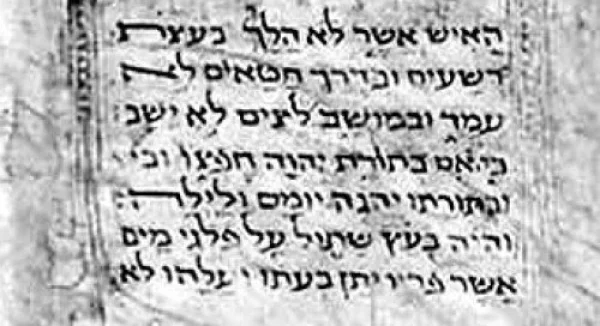 האיש אשר לא הלך בעצת
רשעים ובדרך חטאים לא
עמד ובמושב לצים לא ישב
כי אם בתורת יהוה חפצו וב
ובתורתו יהגה יומם ולילה:
והיה כעץ שתול על פלגי מים
אשר פריו יתן בעתו ועלהו לא